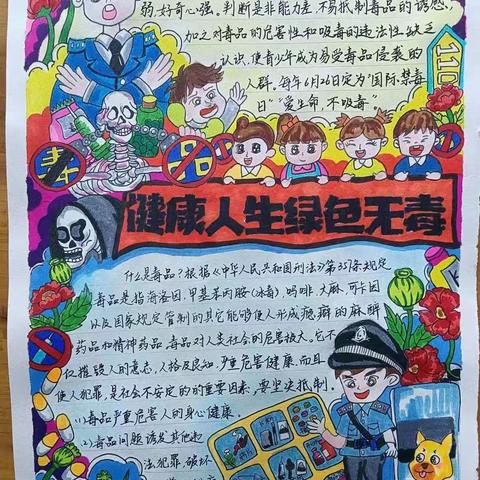 弱,好奇心强。判断是非能力差,不易抵制毒品的诱惑,
加之对毒品的危害性和吸毒的违法性缺乏
认识,使青少年成为易受毒品侵袭的
人群。每年6月26日定为“国际禁毒
日”“爱生命 不吸毒”。
110
毒
品
健康人生绿色无毒
什么是毒品?根据《中华人民共和国刑法》第357条规定
毒品是指海洛因、甲基苯丙胺(冰毒)、吗啡、大麻、可卡因
以及国家规定管制的其它能够使人形成瘾癖的麻醉
药品和精神药品。毒品对人类社会的危害极大。它不
仅摧毁人的意志、人格及良知,严重危害健康,而且
使人犯罪,是社会不安定的的重要因素,要坚决抵制。
(1)毒品严重危害人的身心健康。
(2)毒品问题诱发其他违
法犯罪,破坏
警察